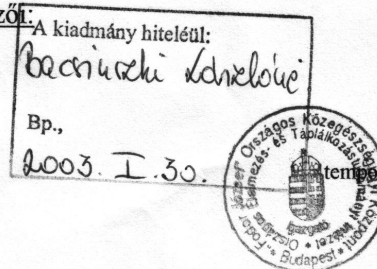 zői:
A kiadmány hiteléül:
Bacsinszki Lászlóné
Bp.,
2003. I. 30.
tempo
"Fodor József" Országos Közegészségügyi Központ
Országos Élelmezés- és Táplálkozástudományi
Igazgató
Budapest